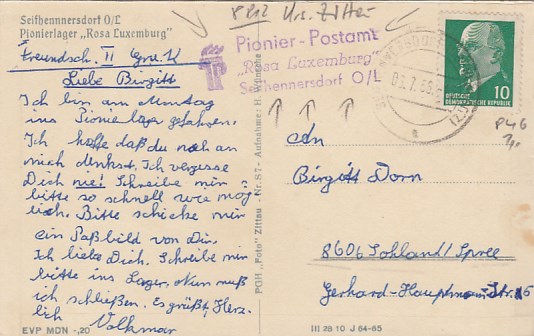 Seifhennersdorf O/L
Pionierlager „Rosa Luxemburg"
Freundsch. II
Liebe Birgitt
Ich bin am Montag
ins Pionierlager gefahren.
Ich hoffe daß du noch an
mich denkst. Ich vergesse
Dich nie! Schreibe mir
bitte so schnell wie mög-
lich. Bitte schicke mir
ein Paßbild von Dir.
Ich liebe Dich. Schreibe mir
bitte ins Lager. Nun muß
ich schließen. Es grüßt Herz-
lich Volkmar
EVP MDN -,20
PGH „Foto" Zittau - Nr. 87 - Aufnahme: H. Wünsche
8812 Krs. Zittau
Pionier-Postamt
„Rosa Luxemburg"
Seifhennersdorf O/L
10
DEUTSCHE
DEMOKRATISCHE REPUBLIK
An
Birgitt Dorn
8606 Sohland/Spree
Gerhard-Hauptmann-Str. 16
III 28 10 J 64-65